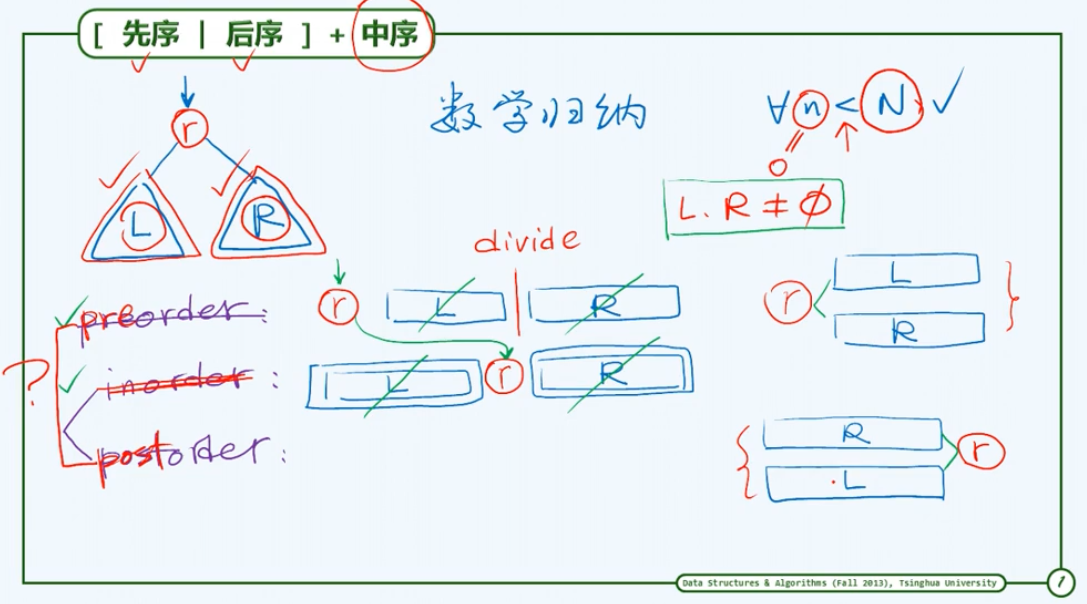 [ 先序 | 后序 ] + 中序
r
L R
数学归纳
∀n < N ✓
0
L. R ≠ ∅
divide
preorder: r L R
inorder: L r R
postorder:
?
r L
R
R
L r
Data Structures & Algorithms (Fall 2013), Tsinghua University
1